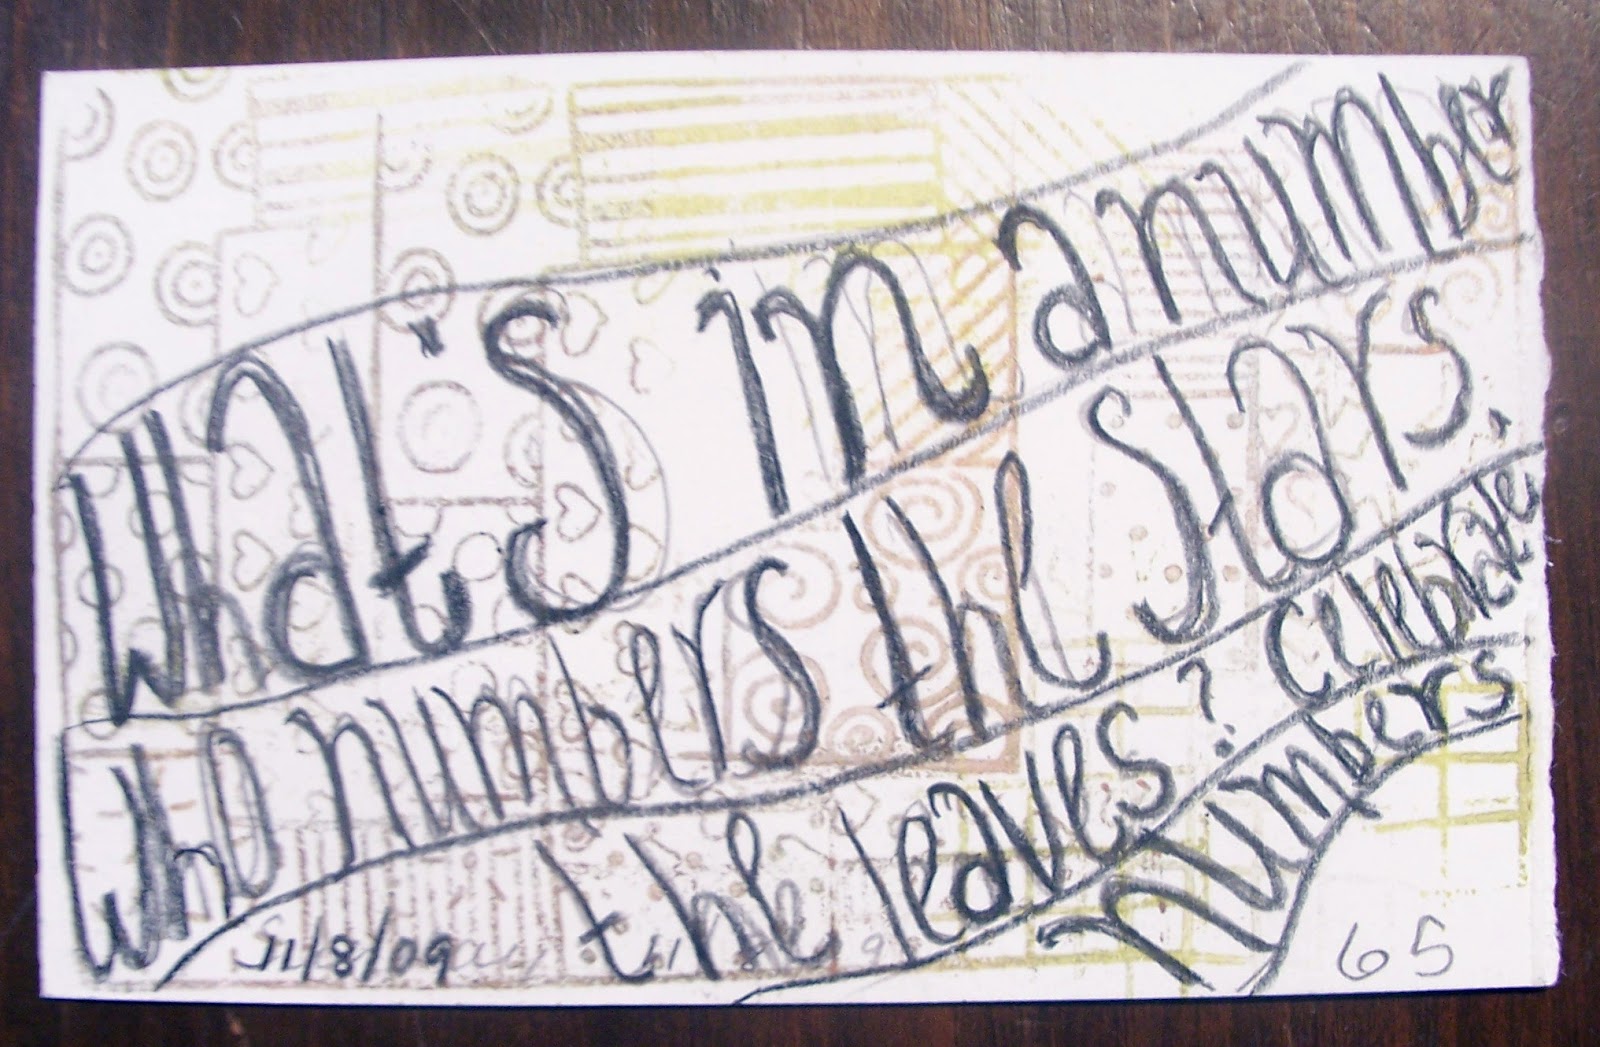 What's in a number
who numbers the stars,
the leaves? celebrate
numbers
11/8/09
65